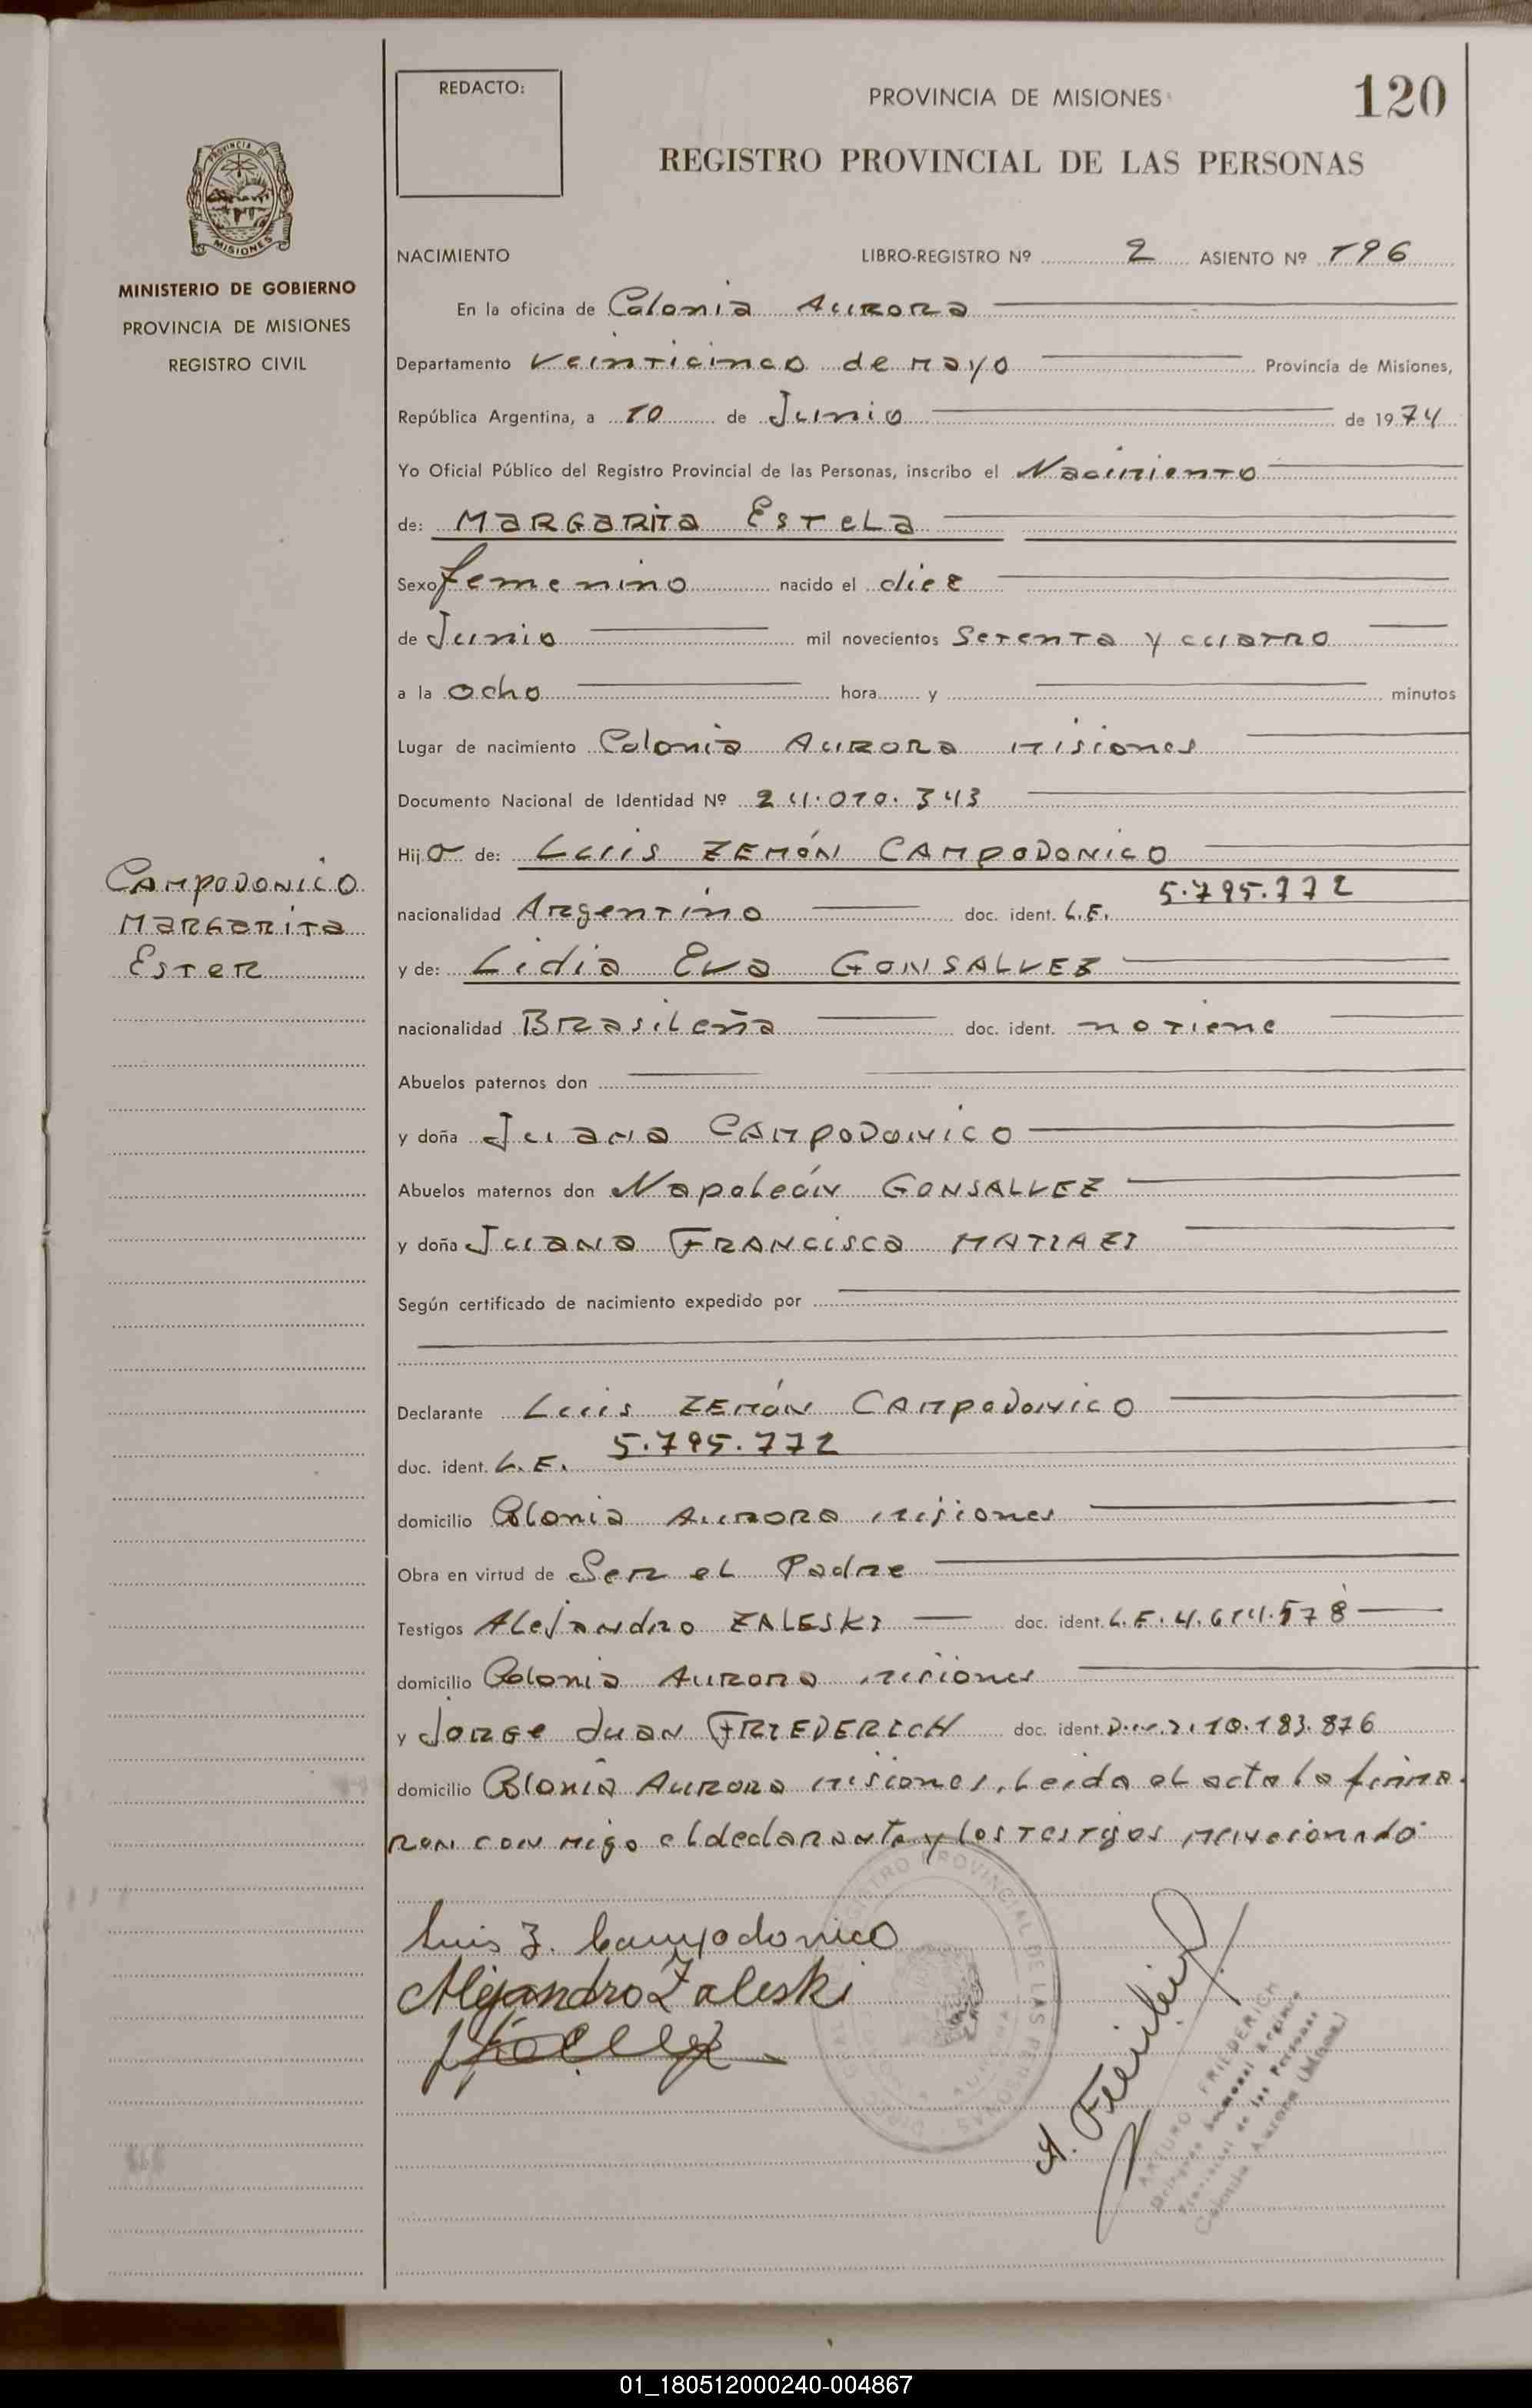 REDACTO:
PROVINCIA DE MISIONES
120
REGISTRO PROVINCIAL DE LAS PERSONAS
PROVINCIA DE
MISIONES
MINISTERIO DE GOBIERNO
PROVINCIA DE MISIONES
REGISTRO CIVIL
NACIMIENTO LIBRO-REGISTRO Nº 2 ASIENTO Nº 196
En la oficina de Colonia Aurora
Departamento Veinticinco de mayo Provincia de Misiones,
República Argentina, a 10 de Junio de 1974
Yo Oficial Público del Registro Provincial de las Personas, inscribo el Nacimiento
de: Margarita Estela
Sexo femenino nacido el diez
de Junio mil novecientos Setenta y cuatro
a la ocho hora y minutos
Lugar de nacimiento Colonia Aurora misiones
Documento Nacional de Identidad Nº 24.010.343
Hij a de: Luis ZEMÓN CAMPODONICO
CAMPODONICO
Margarita
Ester
nacionalidad Argentino doc. ident. L.E. 5.795.772
y de: Lidia Eva GONSALVEZ
nacionalidad Brasileña doc. ident. no tiene
Abuelos paternos don
y doña Juana CAMPODONICO
Abuelos maternos don Napoleón GONSALVEZ
y doña Juana Francisca MATIAZI
Según certificado de nacimiento expedido por
Declarante Luis ZEMÓN CAMPODONICO
doc. ident. L.E. 5.795.772
domicilio Colonia Aurora misiones
Obra en virtud de Ser el Padre
Testigos Alejandro ZALESKI doc. ident. L.E. 4.614.578
domicilio Colonia Aurora misiones
y Jorge Juan FRIEDERICH doc. ident. D.N.I. 10.183.876
domicilio Colonia Aurora misiones, Leida el acta la firma
ron con migo el declarante y los testigos mencionado
Luis Z. Campodonico
Alejandro Zaleski
REGISTRO PROVINCIAL DE LAS PERSONAS
A. Friederich
ARTURO FRIEDERICH
Provincial de las Personas
Colonia Aurora (Misiones)
01_180512000240-004867